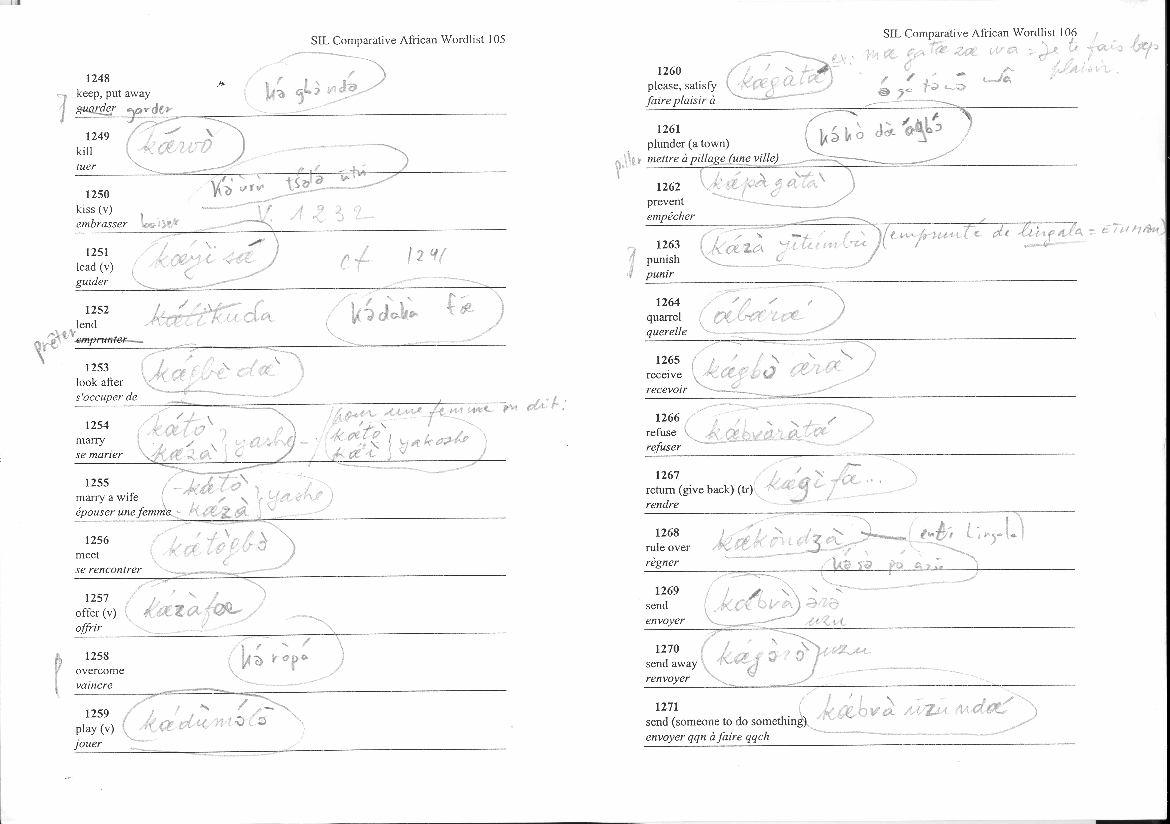 SIL Comparative African Wordlist 105
1248
keep, put away
guarder garder
kə́ gbə̀ ndə́
1249
kill
tuer
kǽwò
1250
kiss (v)
embrasser baiser
V. 1232
1251
lead (v)
guider
kǽyì sǽ cf 1241
1252
lend
prêter
emprunter
1253
look after
s'occuper de
kǽgbè dæ̀
1254
marry
se marier
kǽtò
kǽzà } yashe
pour une femme on dit :
kǽtò
kǽì } yakoshe
1255
marry a wife
épouser une femme
- kǽtò
- kǽzà } yashe
1256
meet
se rencontrer
kǽtògbɔ̀
1257
offer (v)
offrir
kǽzàfæ
1258
overcome
vaincre
kə́ ròpá
1259
play (v)
jouer
kǽdùmɔ́lɔ̄
SIL Comparative African Wordlist 106
1260
please, satisfy
faire plaisir à
kǽgàtǽ
ex: mæ gatæ zæ wa = je te fais bcp
plaisir.
1261
plunder (a town)
piller mettre à pillage (une ville)
1262
prevent
empêcher
kǽpà gàtà
1263
punish
punir
kǽzà yìtúmbù (emprunté de lingala = ETUMBU)
1264
quarrel
querelle
ǽbárǽ
1265
receive
recevoir
kǽgbɔ̀ æ̀ræ̀
1266
refuse
refuser
kǽbvàràtǽ
1267
return (give back) (tr)
rendre
kǽgì fæ...
1268
rule over
règner
kǽkòndzà
1269
send
envoyer
kǽbvà ə̀rə̀
uzu
1270
send away
renvoyer
kǽgə̀rə̀ uzu
1271
send (someone to do something)
envoyer qqn à faire qqch
kǽbvà ūzū ndǽ